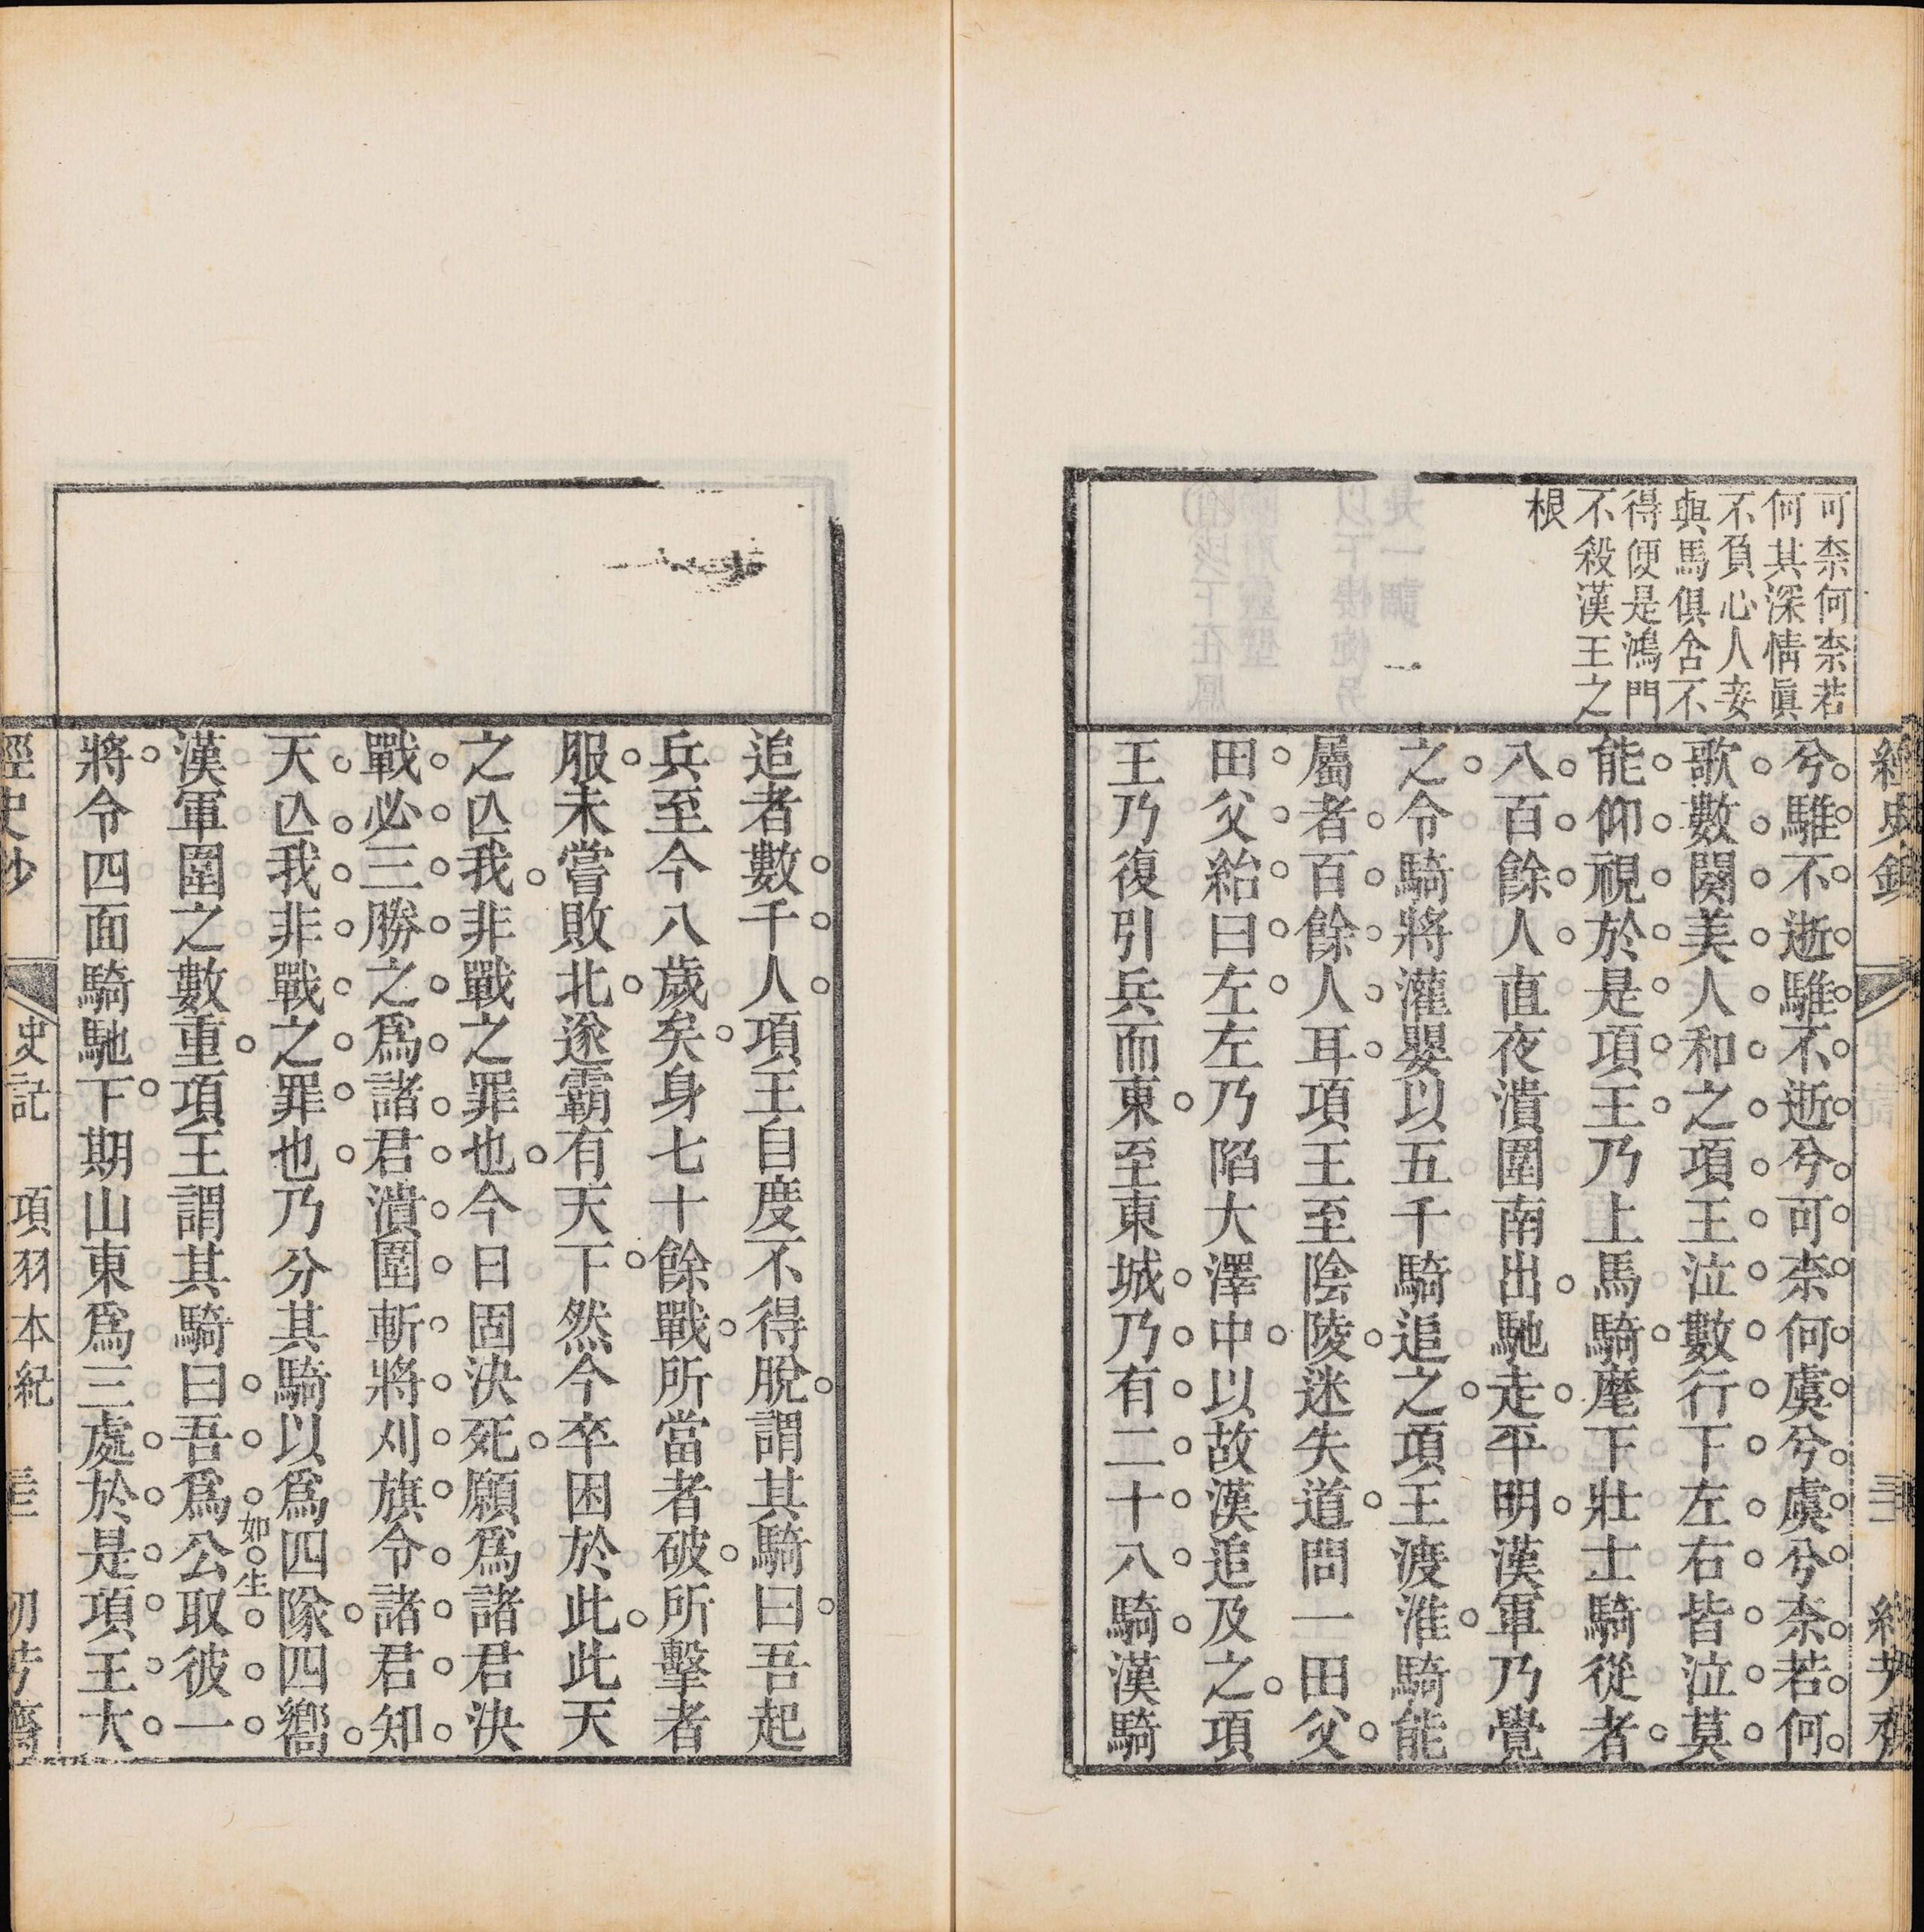 可柰何柰若
何其深情眞
不負心人妾
與馬俱舍不
得便是鴻門
不殺漢王之
根
兮騅不逝騅不逝兮可柰何虞兮虞兮柰若何
歌數闋美人和之項王泣數行下左右皆泣莫
能仰視於是項王乃上馬騎麾下壯士騎從者
八百餘人直夜潰圍南出馳走平明漢軍乃覺
之令騎將灌嬰以五千騎追之項王渡淮騎能
屬者百餘人耳項王至陰陵迷失道問一田父
田父紿曰左左乃陷大澤中以故漢追及之項
王乃復引兵而東至東城乃有二十八騎漢騎
追者數千人項王自度不得脫謂其騎曰吾起
兵至今八歲矣身七十餘戰所當者破所擊者
服未嘗敗北遂霸有天下然今卒困於此此天
之亾我非戰之罪也今日固決死願爲諸君決
戰必三勝之爲諸君潰圍斬將刈旗令諸君知
天亾我非戰之罪也乃分其騎以爲四隊四嚮
漢軍圍之數重項王謂其騎曰吾爲公取彼一
如生
將令四面騎馳下期山東爲三處於是項王大
經史鈔 史記 項羽本紀